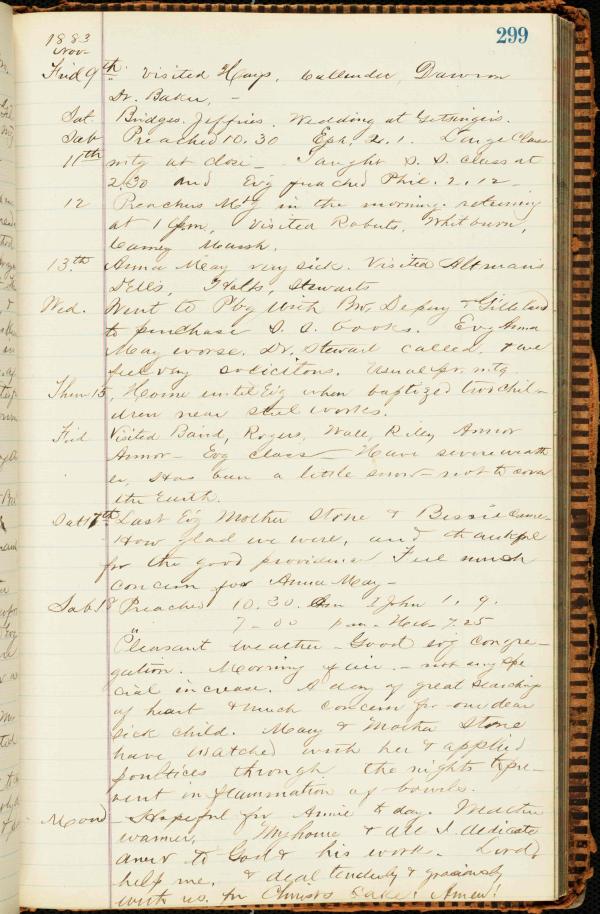 299
1883
Nov
Frid 9th. Visited Hays, Callender, Dawson
Dr. Baker, –
Sat Bridges. Jeffries. Wedding at Gettingers.
Sab Preached 10.30 Eph. 2. 1. Large Class
11th mtg at close – Taught S. S. class at
2.30 and Ev'g preached Phil. 2. 12 –
12 Preachers Mtg in the morning returning
at 1 pm, Visited Roberts, Whitburn,
Carney Marsh.
13th Anna May very sick. Visited Altmans
Dells, Halls, Stewarts
Wed. Went to Pbg with Bro, Depuy & Gilleland
to purchase S. S. books. Ev'g Anna
May worse. Dr. Stewart called, & we
feel very solicitous. Usual pr. mtg
Thur 15, Home until Ev'g when baptized two chil-
dren near steel works.
Frid Visited Baird, Rogers, Wall, Riley Armor
Armor – Ev'g class – Have severe weath
er, Has been a little snow – not to cover
the Earth.
Sat 17th Last Ev'g Mother Stone & Bessie came –
How glad we were, and thankful
for the good providence Feel much
concern for Anna May –
Sab 18 Preached 10.30. am I John 1. 9.
" 7 – 00 p.m – Heb. 7.25
Pleasant weather – Good ev'g congre-
gation. Morning fair. – not any spe
cial increase. A day of great searching
of heart & much concern for our dear
sick child. Mary & Mother Stone
have watched with her & applied
poultices through the nights to pre-
vent inflammation of bowels.
Mond – Hopeful for Annie to day. Weather
warmer, My home & all I dedicate
anew to God & his work. Lord
help me, & deal tenderly & graciously
with us. for Christ's sake! Amen!